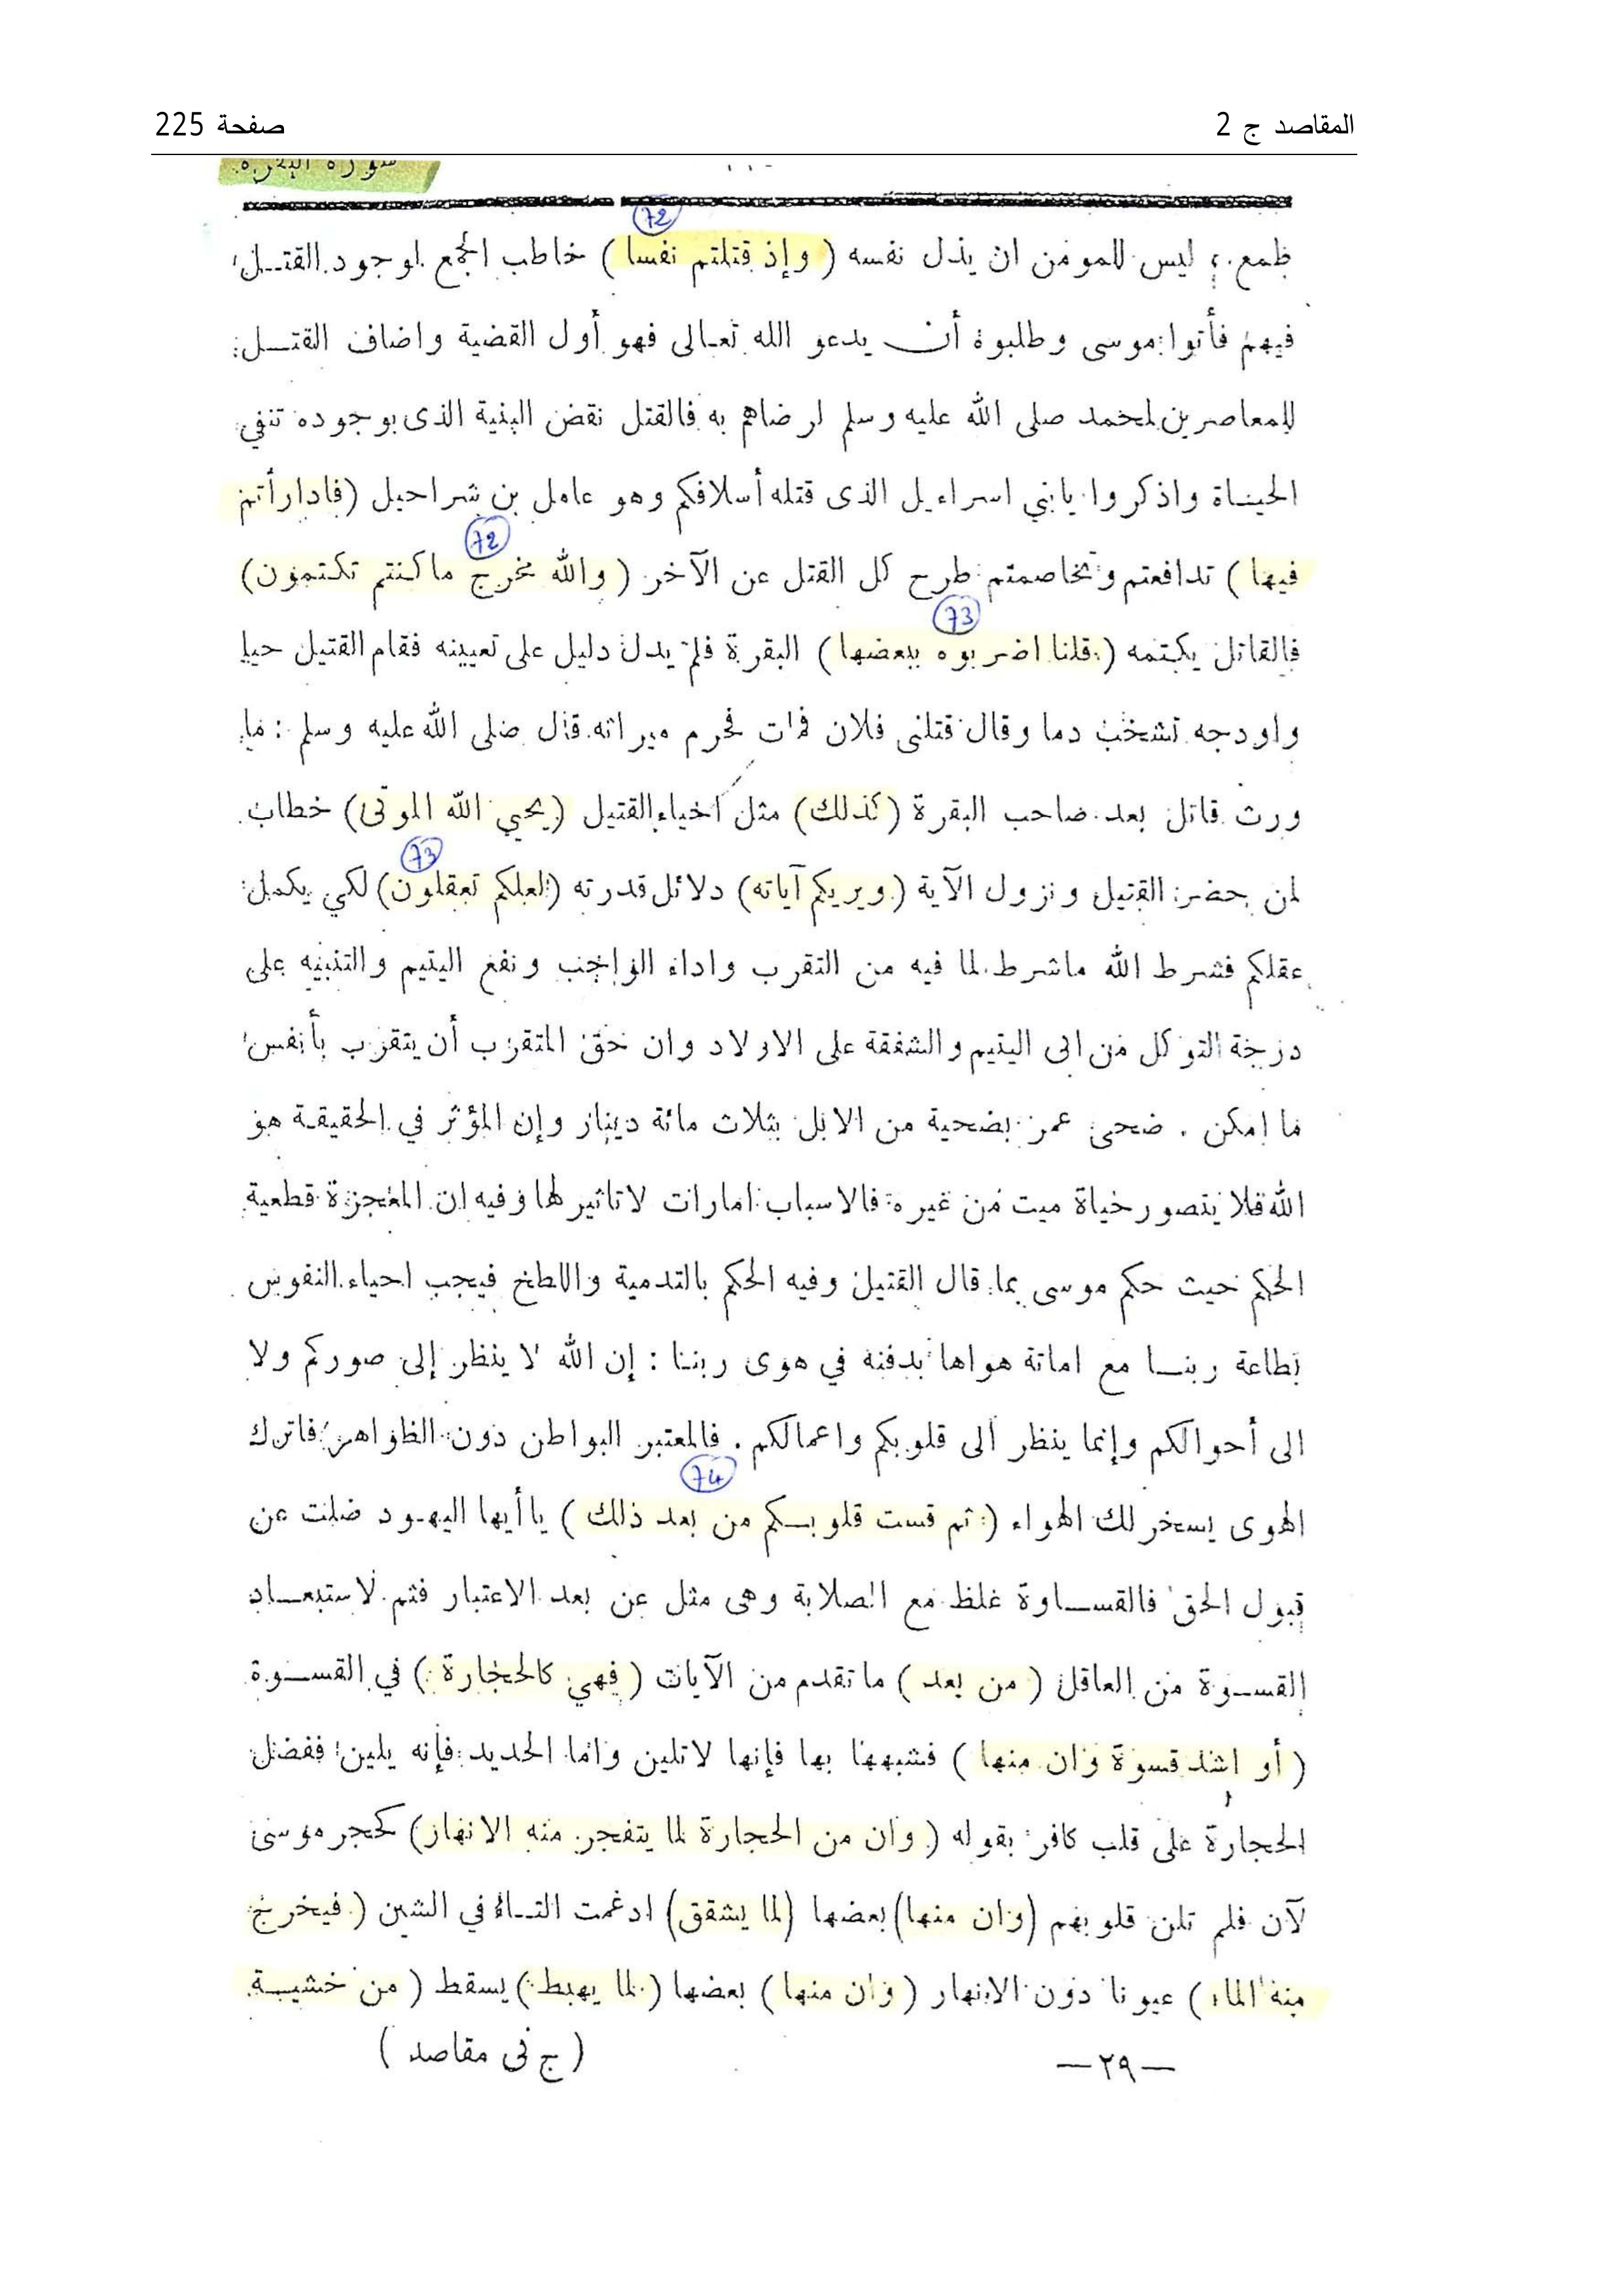 المقاصد ج 2
صفحة 225
سورة البقرة
72
طمع ، ليس للمومن ان يذل نفسه ( وإذ قتلتم نفسا ) خاطب الجمع لوجود القتــل
فيهم فأتوا موسى وطلبوه أن يدعو الله تعالى فهو أول القضية واضاف القتــل
للمعاصرين لمحمد صلى الله عليه وسلم لرضاهم به فالقتل نقض البنية الذى بوجوده تنفي
الحيــاة واذكروا يابني اسراءيل الذى قتله أسلافكم وهو عامل بن شراحيل (فادارأتم
72
فيها ) تدافعتم وتخاصمتم طرح كل القتل عن الآخر ( والله مخرج ماكنتم تكتمون)
73
فالقاتل يكتمه ( قلنا اضربوه ببعضها ) البقرة فلم يدل دليل على تعيينه فقام القتيل حيا
واودجه تشخب دما وقال قتلنى فلان فمات فحرم ميراثه قال صلى الله عليه وسلم : ما
ورث قاتل بعد صاحب البقرة ( كذلك) مثل احياء القتيل (يحيي الله الموتى) خطاب
73
لمن حضر القتيل ونزول الآية ( ويريكم آياته) دلائل قدرته (لعلكم تعقلون) لكي يكمل
عقلكم فشرط الله ماشرط لما فيه من التقرب واداء الواجب ونفع اليتيم والتنبيه على
درجة التوكل من ابى اليتيم والشفقة على الاولاد وان حق المتقرب أن يتقرب بأنفس
ما امكن . ضحى عمر بضحية من الابل بثلاث مائة دينار وإن المؤثر في الحقيقة هو
الله فلا يتصور حياة ميت من غيره فالاسباب امارات لاتاثير لها وفيه ان المعجزة قطعية
الحكم حيث حكم موسى بما قال القتيل وفيه الحكم بالتدمية واللطخ فيجب احياء النفوس
بطاعة ربنــا مع اماتة هواها بدفنه في هوى ربنا : إن الله لا ينظر إلى صوركم ولا
الى أحوالكم وإنما ينظر الى قلوبكم واعمالكم . فالمعتبر البواطن دون الظواهر فاترك
74
الهوى يسخر لك الهواء ( ثم قست قلوبــكم من بعد ذلك ) ياأيها اليهود ضلت عن
قبول الحق فالقســاوة غلظ مع الصلابة وهى مثل عن بعد الاعتبار فثم لاستبعــاد
القســوة من العاقل ( من بعد ) ماتقدم من الآيات ( فهي كالحجارة ) في القســوة
( أو اشد قسوة وان منها ) فشبهها بها فإنها لاتلين واما الحديد فإنه يلين ففضل
الحجارة على قلب كافر بقوله ( وان من الحجارة لما يتفجر منه الانهار) كحجر موسى
لآن فلم تلن قلوبهم (وان منها) بعضها (لما يشقق) ادغمت التــاء في الشين ( فيخرج
منه الماء ) عيونا دون الانهار ( وان منها ) بعضها ( لما يهبط ) يسقط ( من خشيــة
— ٢٩ —
( ج فى مقاصد )